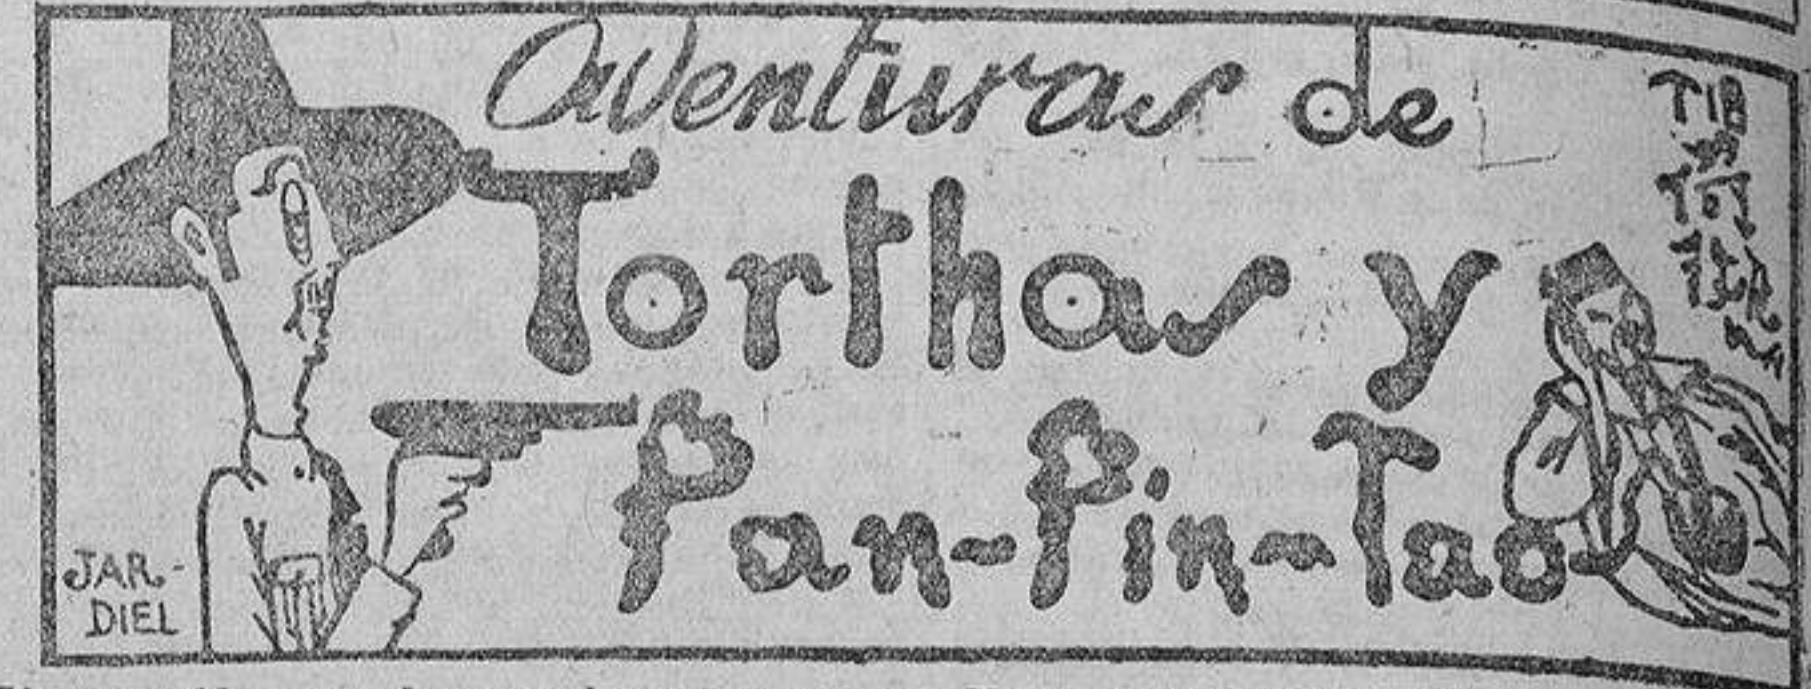 Aventuras de
Torthas y
Pan-Pin-Tao
JAR-
DIEL